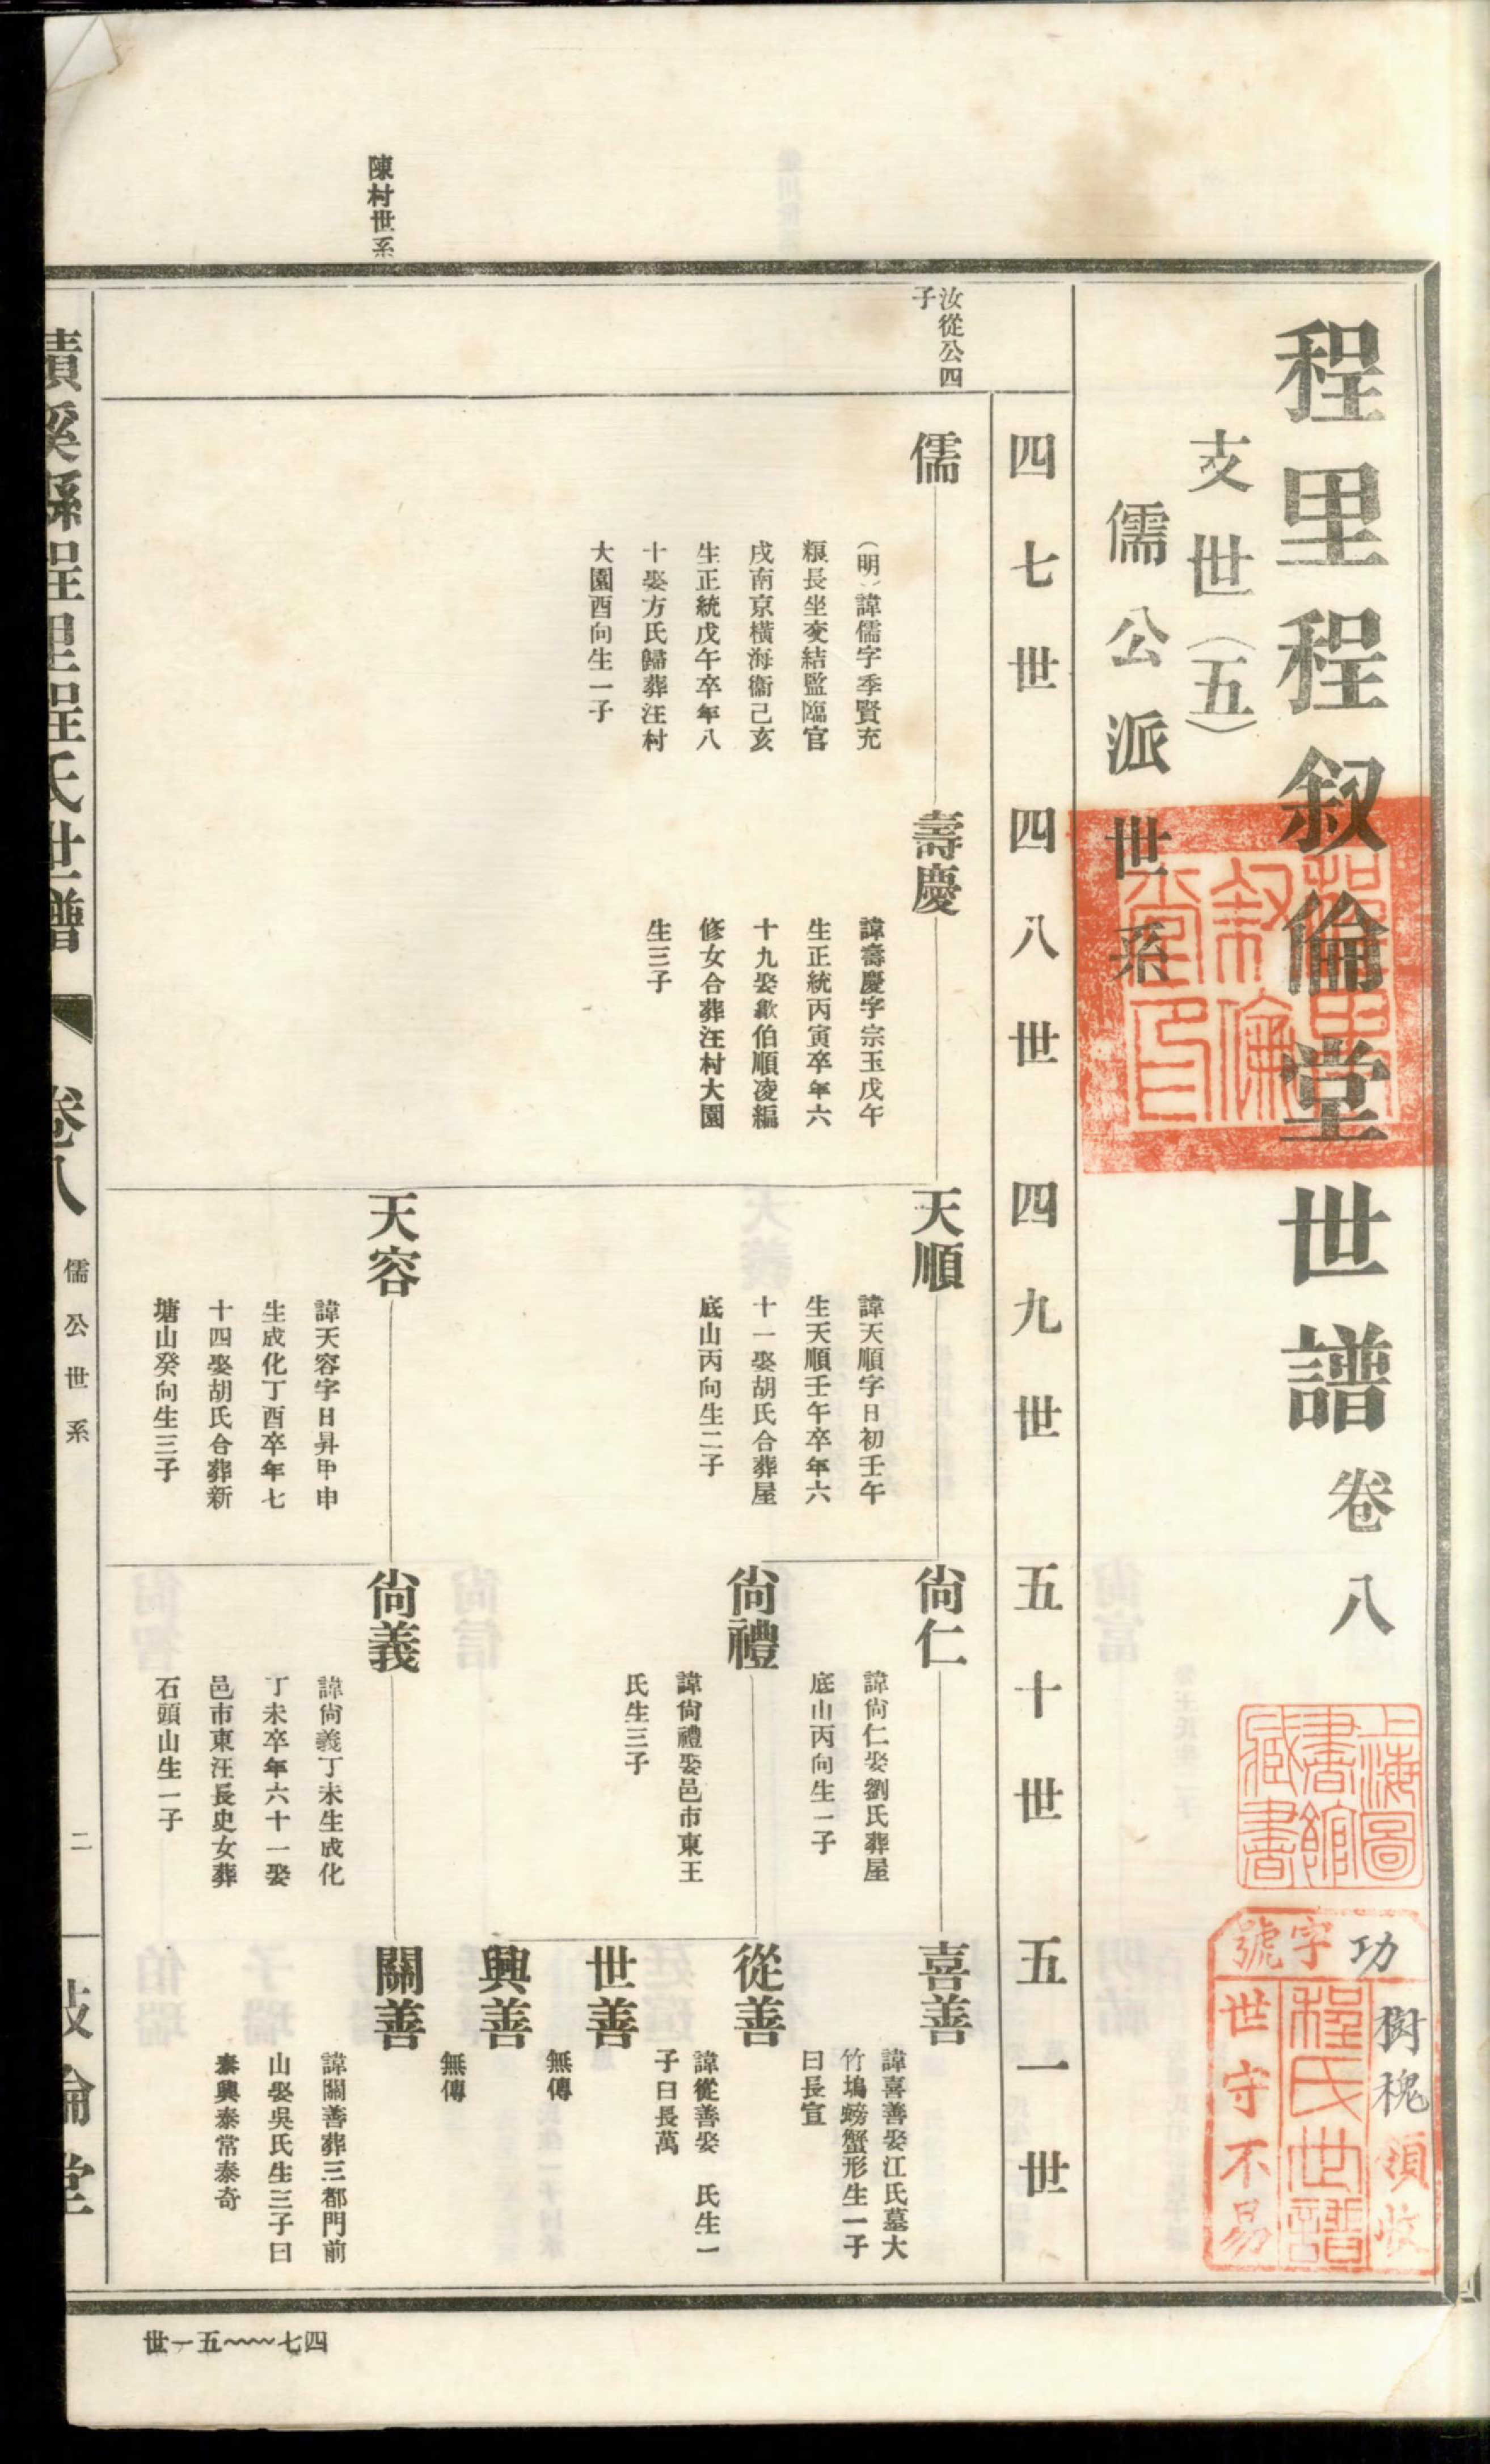 程里程叙倫堂世譜卷八
支世（五）
儒公派世系
上海圖書館藏書
功字號
樹槐領收
程氏世譜
世守不易
四七世
四八世
四九世
五十世
五一世
汝從公四
子
儒
（明）諱儒字季賢充
粮長坐變結監臨官
戌南京橫海衞己亥
生正統戊午卒年八
十娶方氏歸葬汪村
大園酉向生一子
壽慶
諱壽慶字宗玉戊午
生正統丙寅卒年六
十九娶歙伯順凌編
修女合葬汪村大園
生三子
天順
諱天順字日初壬午
生天順壬午卒年六
十一娶胡氏合葬屋
底山丙向生二子
尙仁
諱尙仁娶劉氏葬屋
底山丙向生一子
喜善
諱喜善娶江氏墓大
竹塢螃蟹形生一子
曰長宣
尙禮
諱尙禮娶邑市東王
氏生三子
從善
諱從善娶　氏生一
子曰長萬
世善
無傳
興善
無傳
陳村世系
天容
諱天容字日昇甲申
生成化丁酉卒年七
十四娶胡氏合葬新
塘山癸向生三子
尙義
諱尙義丁未生成化
丁未卒年六十一娶
邑市東汪長史女葬
石頭山生一子
關善
諱關善葬三都門前
山娶吳氏生三子曰
泰興泰常泰奇
績溪縣程里程氏世譜
卷八
儒公世系
二
敍倫堂
四七~~~五一世